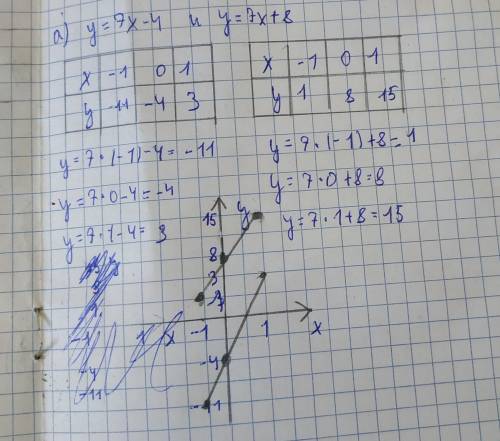 а) y=7x-4 и y=7x+8
x -1 0 1
y -11 -4 3
x -1 0 1
y 1 8 15
y=7·(-1)-4=-11
y=7·0-4=-4
y=7·1-4=3
y=7·(-1)+8=1
y=7·0+8=8
y=7·1+8=15
15 y
8
3
-1 1 x
-4
-11
-4
-11